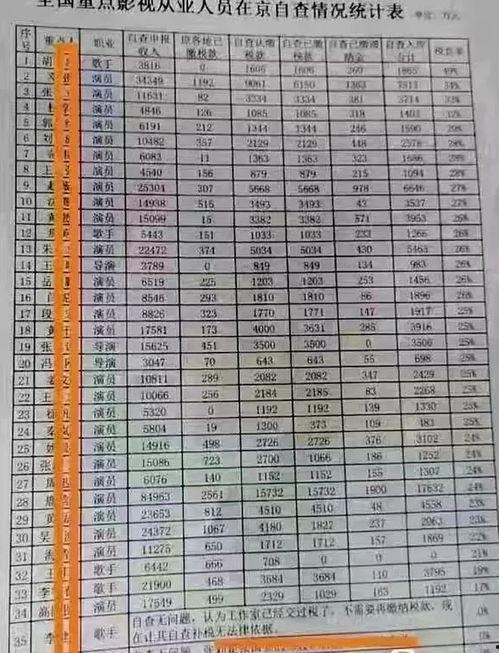 全国重点影视从业人员在京自查情况统计表 单位：万元
序号 重点人 职业 自查申报收入 原各地已缴税款 自查认缴税款 自查已缴税款 自查已缴滞纳金 自查入库合计 税负率
1 胡 歌手 3816 0 1606 1606 260 1866 49%
2 邓 演员 34349 1192 9061 6150 1363 7513 34%
3 张 演员 11631 82 3334 3334 381 3714 33%
4 演员 4846 126 1085 1085 318 1403 32%
5 郭 演员 6191 212 1344 1344 246 1590 29%
6 刘 演员 10482 357 2129 2129 448 2578 28%
7 演员 6083 11 1363 1363 323 1686 28%
8 王 演员 4540 156 879 879 215 1094 28%
9 赵 演员 25304 307 5668 5668 978 6646 27%
10 演员 14938 515 3493 3493 43 3537 27%
11 黄 演员 15099 15 3382 3382 571 3953 26%
12 歌手 5443 151 1033 1033 233 1266 26%
13 朱 演员 22472 374 5034 5034 430 5463 26%
14 王 导演 3789 0 849 849 134 983 26%
15 岳 演员 6519 225 1203 1203 253 1456 26%
16 演员 8546 293 1810 1810 86 1896 26%
17 段 演员 8826 323 1770 1771 147 1917 25%
18 黄 演员 17581 173 4000 3631 285 3916 25%
19 张 导演 15625 451 3500 3500 0 3500 25%
20 冯 导演 3047 70 643 643 55 698 25%
21 姜 演员 10811 289 2082 2082 347 2429 25%
22 王 演员 10066 256 2184 2185 83 2268 25%
23 徐 演员 5320 0 1192 1192 139 1330 25%
24 秦 演员 5804 19 1300 373 109 483 25%
25 演员 14916 498 2726 2726 376 3102 24%
26 张 演员 15086 723 2700 1066 186 1252 24%
27 周 演员 6076 140 1152 1152 155 1307 24%
28 唐 演员 84963 2561 15732 15732 1900 17632 24%
29 黄 演员 23653 812 4510 4510 48 4558 23%
30 吴 演员 24372 1067 4180 1827 237 2063 23%
31 演员 11275 650 1712 1712 157 1869 22%
32 王 歌手 6442 666 708 0 0 0 21%
33 李 歌手 21900 468 3684 3684 110 3795 19%
34 高 演员 17549 499 2329 1029 163 1192 17%
35 李 歌手 自查无问题，认为工作室已经交过税了，不需要再缴纳税款，现在计其自查补税无法律依据。 .0%
自查无问题，